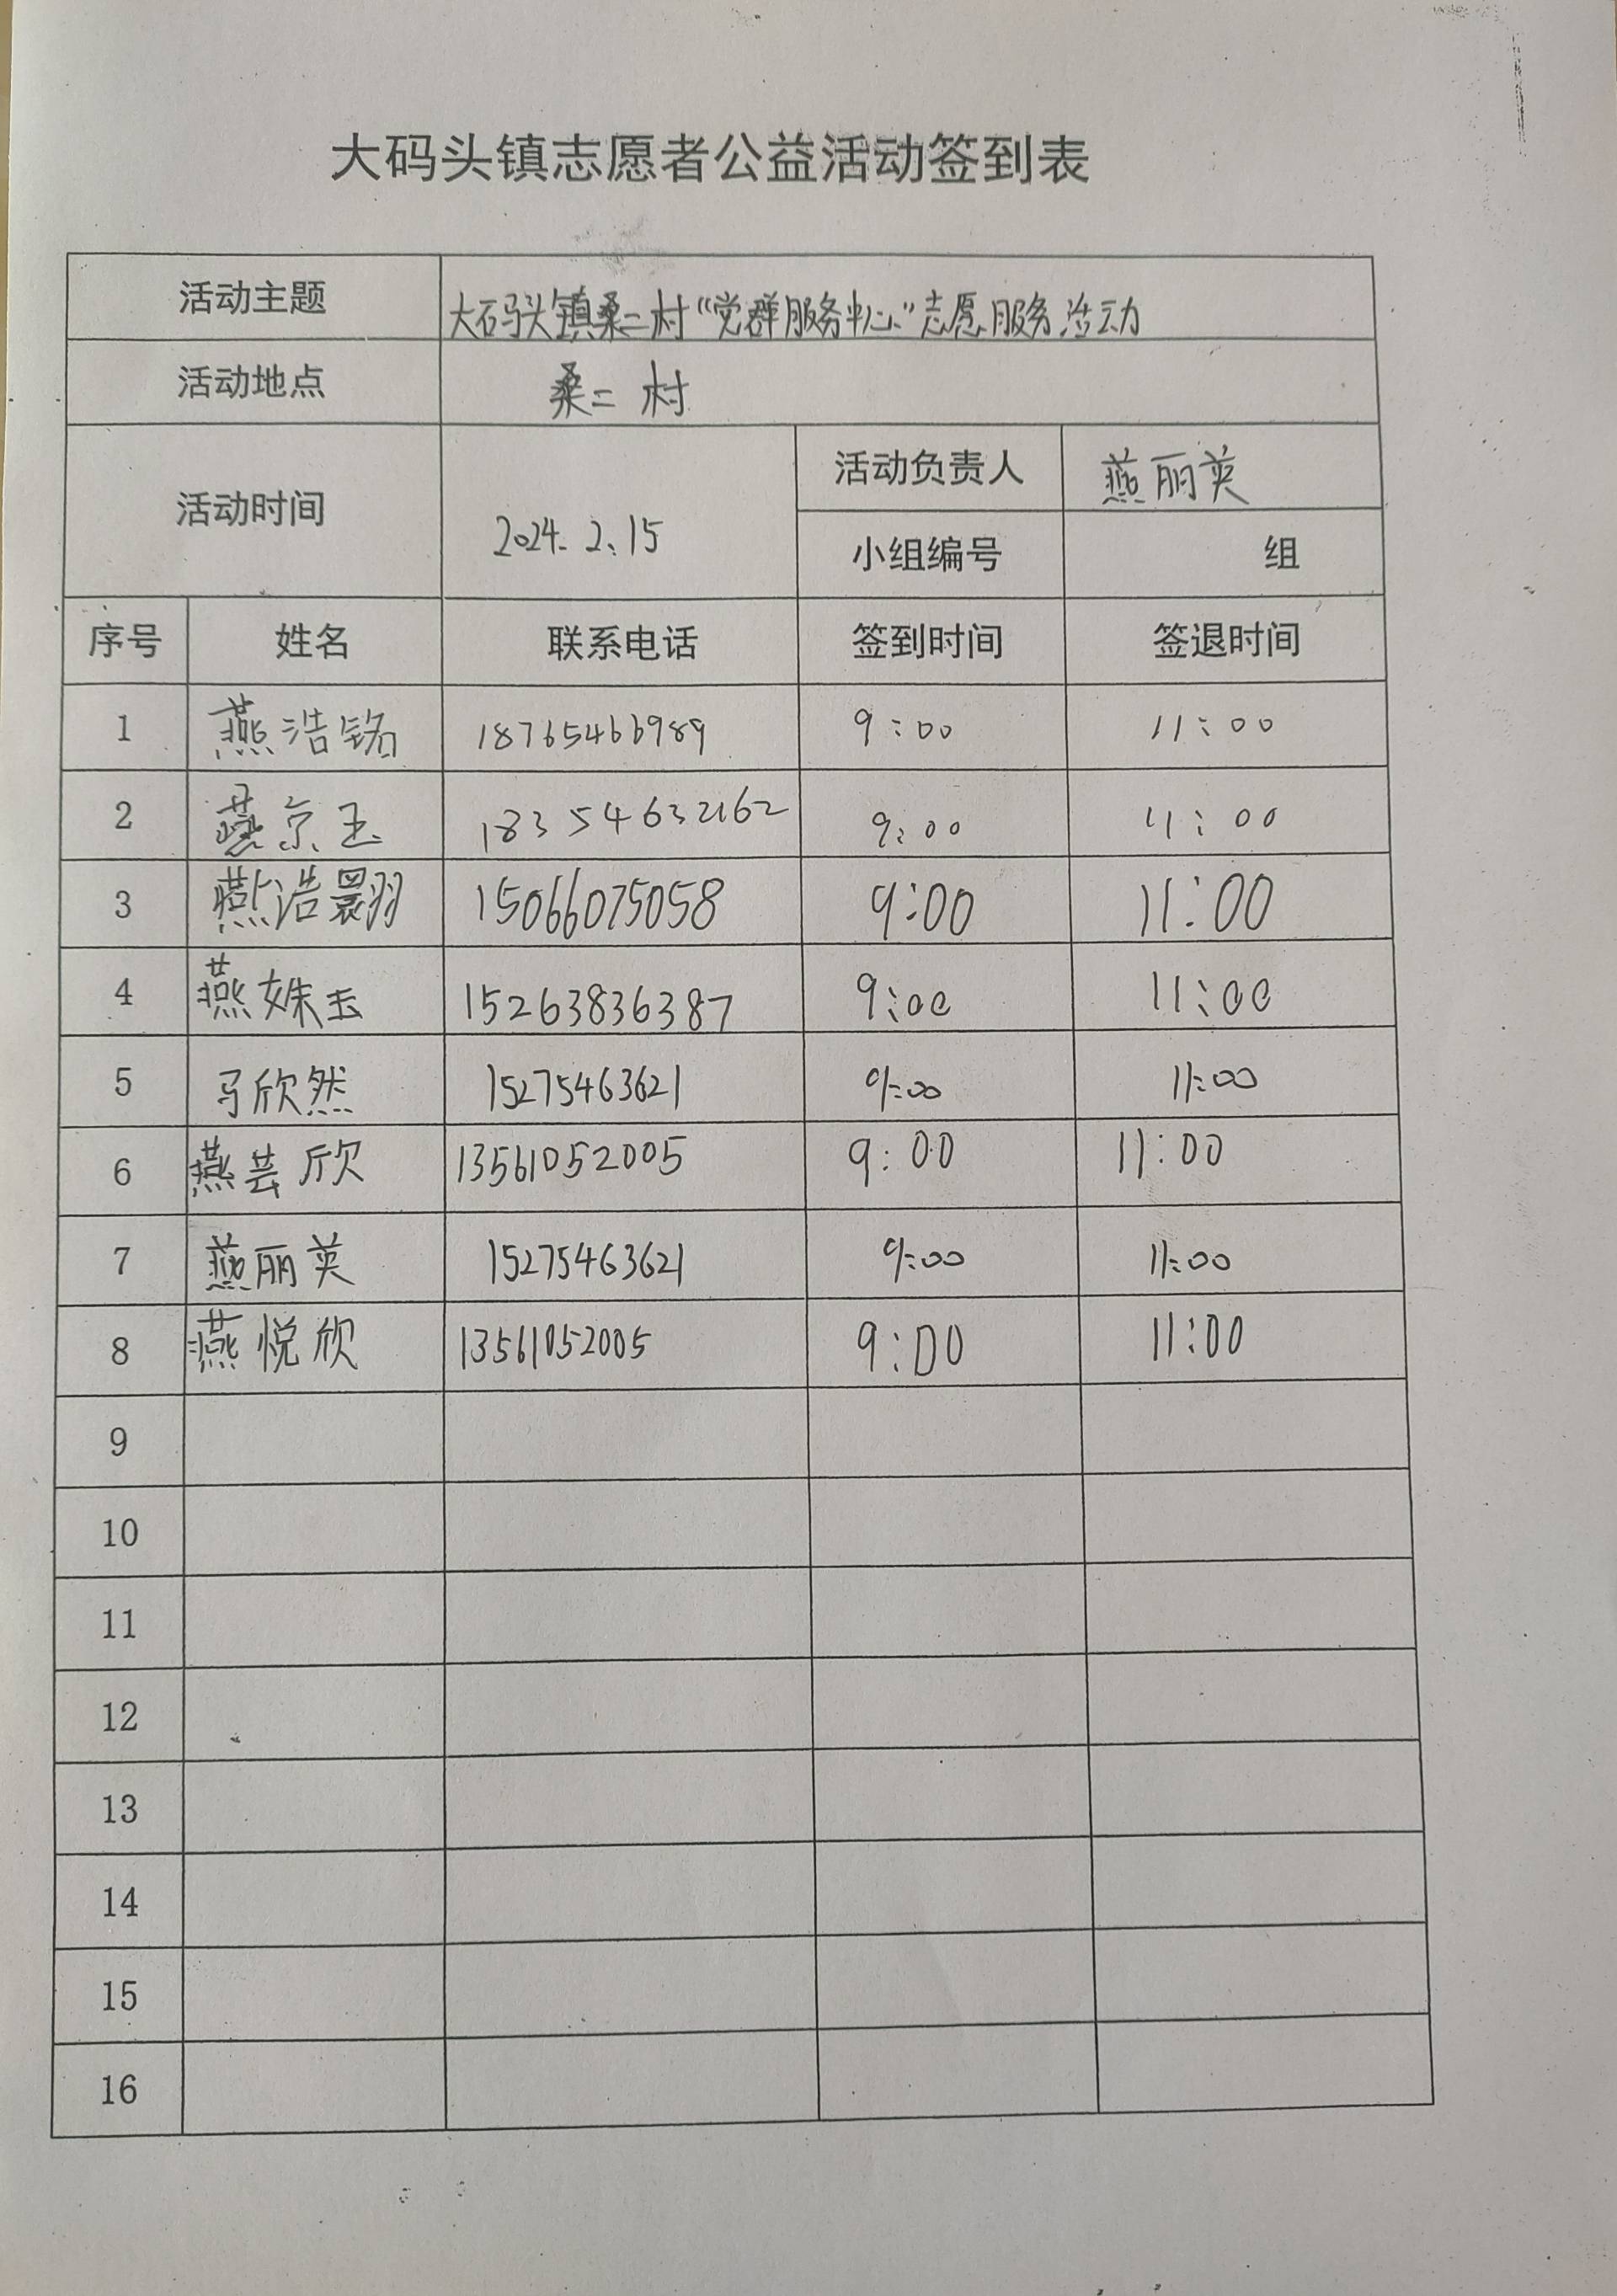 大码头镇志愿者公益活动签到表
活动主题 大码头镇桑二村“党群服务中心”志愿服务活动
活动地点 桑二村
活动时间 2024.2.15 活动负责人 燕丽英
小组编号 组
序号 姓名 联系电话 签到时间 签退时间
1 燕浩铭 18765466989 9:00 11:00
2 燕京玉 18354632162 9:00 11:00
3 燕浩 15066075058 9:00 11:00
4 燕姝玉 15263836387 9:00 11:00
5 马欣然 15275463621 9:00 11:00
6 燕芸欣 13561052005 9:00 11:00
7 燕丽英 15275463621 9:00 11:00
8 燕悦欣 13561052005 9:00 11:00
9
10
11
12
13
14
15
16